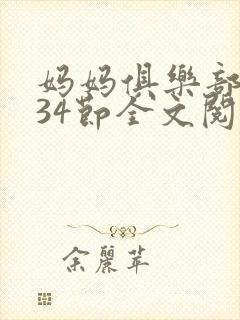 妈妈俱樂部
34節全文閱
余麗苹